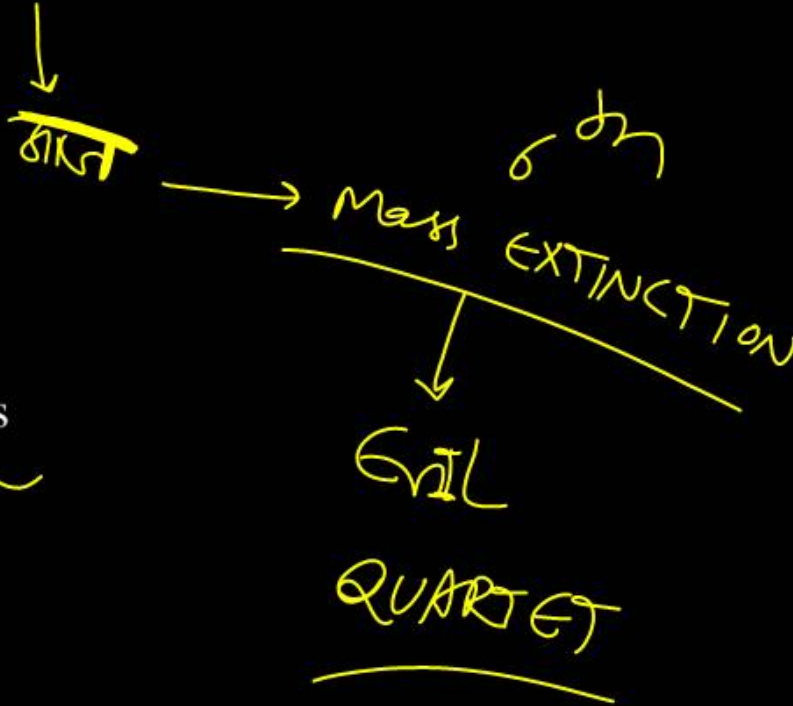 6th
Mass EXTINCTION
s
EVIL
QUARTET